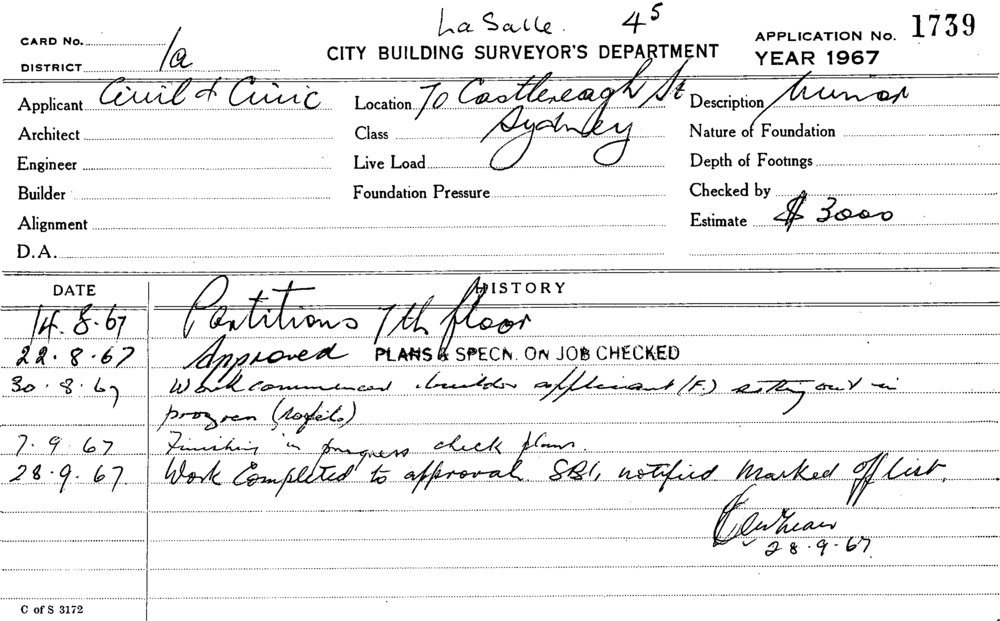 La Salle. 4 5
CARD No. CITY BUILDING SURVEYOR'S DEPARTMENT APPLICATION No. 1739
DISTRICT 1a YEAR 1967
Applicant Civil & Civic Location 70 Castlereagh St Description Minor
Architect Class Sydney Nature of Foundation
Engineer Live Load Depth of Footings
Builder Foundation Pressure Checked by
Alignment Estimate $ 3000
D.A.
DATE HISTORY
14.8.67 Partitions 7th floor
22.8.67 Approved PLANS & SPECN. ON JOB CHECKED
30.8.67 Work commenced builder applicant (F.) setting out in
progress
7.9.67 Finishing in progress check plans.
28.9.67 Work Completed to approval. SBI, notified Marked off list.
28.9.67
C of S 3172